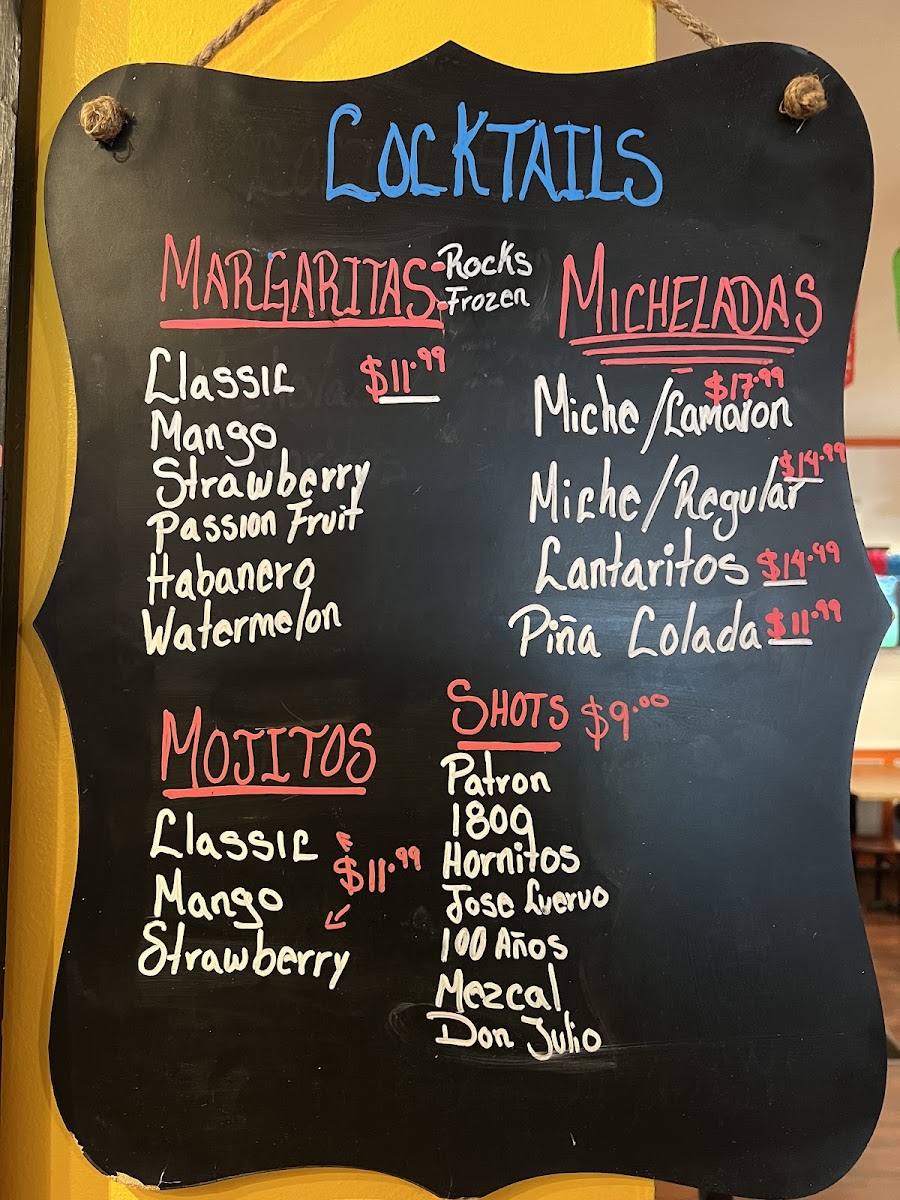 COCKTAILS
MARGARITAS - Rocks
- Frozen
Classic $11.99
Mango
Strawberry
Passion Fruit
Habanero
Watermelon
MICHELADAS
Miche/Camaron $17.99
Miche/Regular $14.99
Cantaritos $14.99
Piña Colada $11.99
MOJITOS
Classic
Mango $11.99
Strawberry
SHOTS $9.00
Patron
1800
Hornitos
Jose Cuervo
100 Años
Mezcal
Don Julio